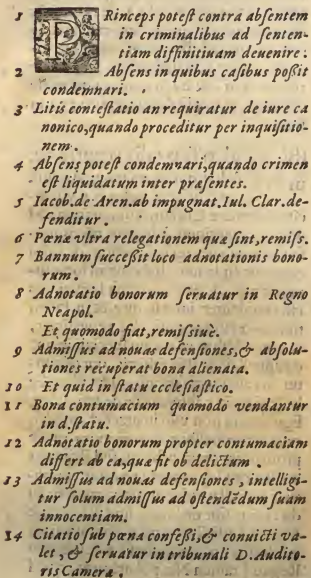 1 PRinceps potest contra absentem
in criminalibus ad senten-
tiam diffinitiuam deuenire.
2 Absens in quibus casibus possit
condemnari.
3 Litis contestatio an requiratur de iure ca
nonico, quando proceditur per inquisitio-
nem.
4 Absens potest condemnari, quando crimen
est liquidatum inter præsentes.
5 Iacob. de Aren. ab impugnat. Iul. Clar. de-
fenditur.
6 Pœnæ vltra relegationem quæ sint, remiss.
7 Bannum successit loco adnotationis bono-
rum.
8 Adnotatio bonorum seruatur in Regno
Neapol.
Et quomodo fiat, remissiuè.
9 Admissus ad nouas defensiones, & absolu-
tiones recuperat bona alienata.
10 Et quid in statu ecclesiastico.
11 Bona contumacium quomodo vendantur
in d. statu.
12 Adnotatio bonorum propter contumaciam
differt ab ea, quæ fit ob delictum.
13 Admissus ad nouas defensiones, intelligi-
tur solum admissus ad ostendēdum suam
innocentiam.
14 Citatio sub pœna confessi, & conuicti va-
let, & seruatur in tribunali D. Audito-
ris Cameræ.